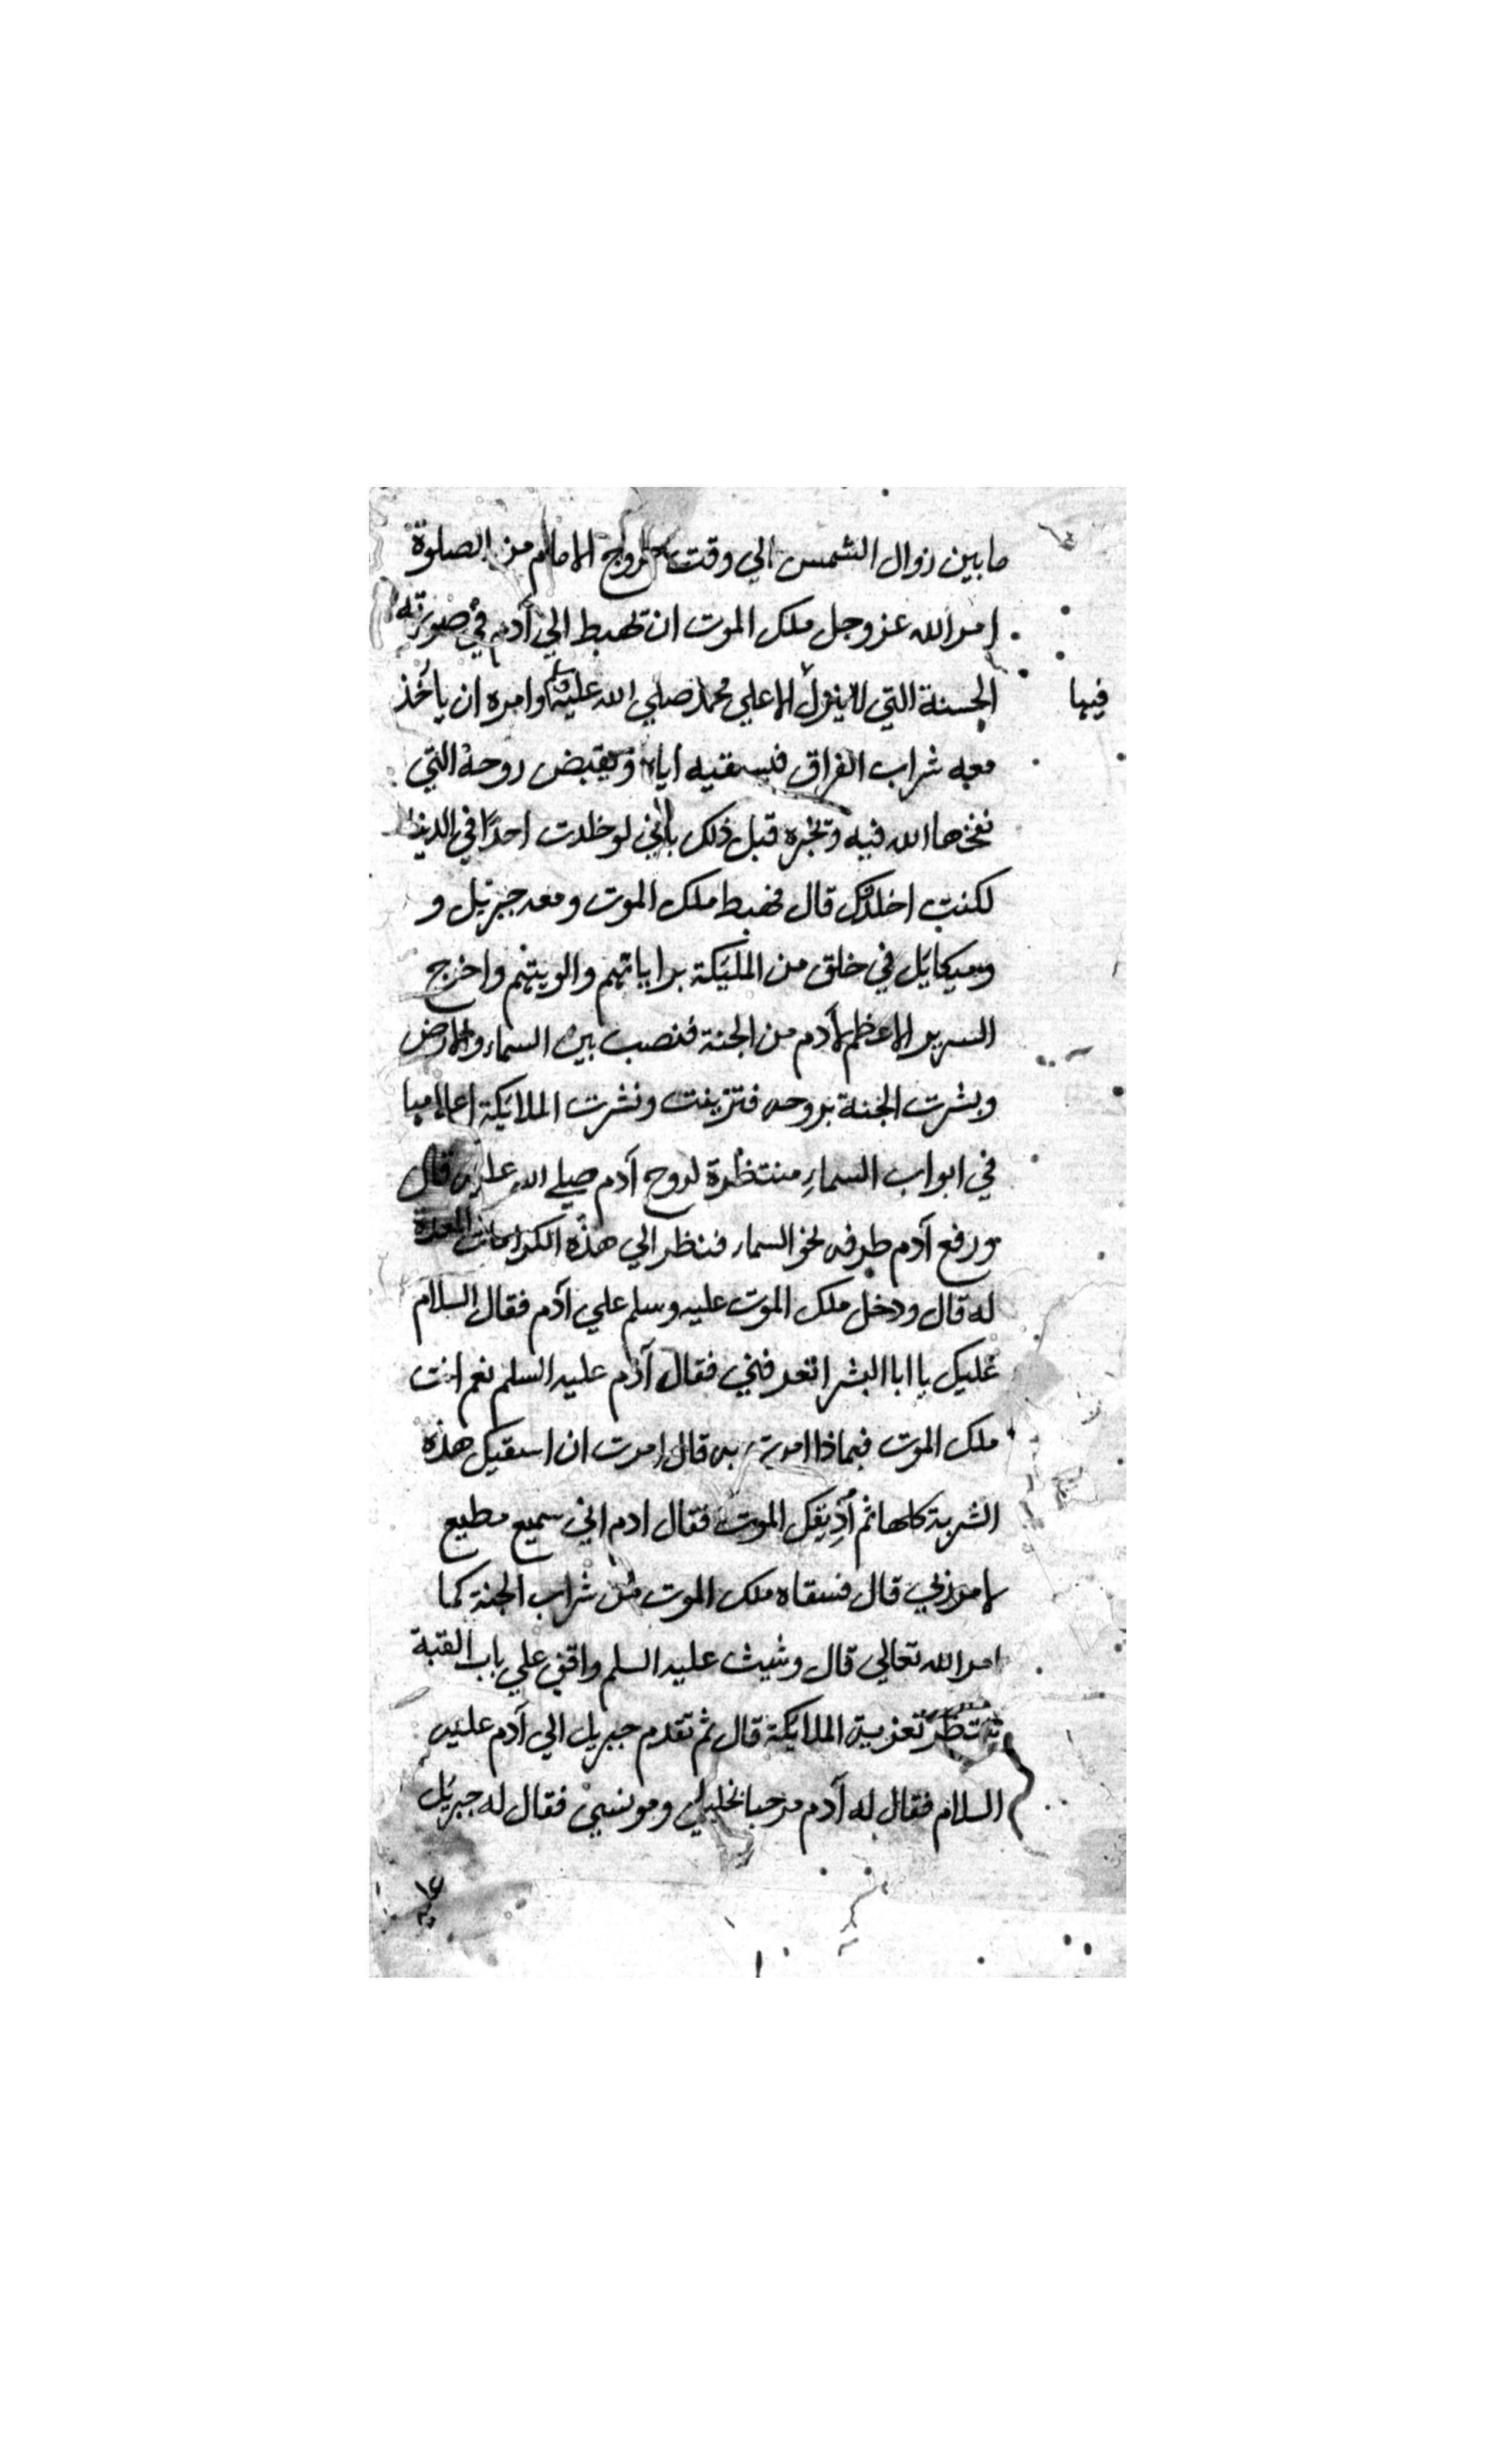 ما بين زوال الشمس الي وقت خروج الامام من الصلوة
امر الله عز وجل ملك الموت ان تهبط الي آدم في صورته
الحسنة التي لا ينزل الا علي محمد صلي الله عليه وسلم وامره ان يأخذ
فيها
معه شراب الفراق فيسقيه اياه ويقبض روحه التي
نفخها الله فيه وتخبره قبل ذلك باني لو خلدت احدًا في الدنيا
لكنت اخلدك قال فهبط ملك الموت ومعه جبرئيل و
وميكائيل في خلق من المليكة براياتهم والويتهم واخرج
السرير الاعظم لآدم من الجنة فنصب بين السماء والارض
وبشرت الجنة بروحه فتزينت ونشرت الملائكة اعلامها
في ابواب السماء منتظرة لروح آدم صلي الله عليه قال
ورفع آدم طرفه نحو السماء فنظر الي هذه الكرامات المعدة
له قال ودخل ملك الموت عليه وسلم علي آدم فقال السلام
عليك يا ابا البشر اتعرفني فقال آدم عليه السلم نعم انت
ملك الموت فبماذا امرت به قال امرت ان اسقيك هذه
الشربة كلها ثم أذيقك الموت فقال ادم اني سميع مطيع
لامر ربي قال فسقاه ملك الموت من شراب الجنة كما
امر الله تعالي قال وشيث عليه السلم واقف علي باب القبة
تنتظر تعزية الملائكة قال ثم تقدم جبريل الي آدم عليه
السلام فقال له آدم مرحبا بخليلي ومونسي فقال له جبرئيل